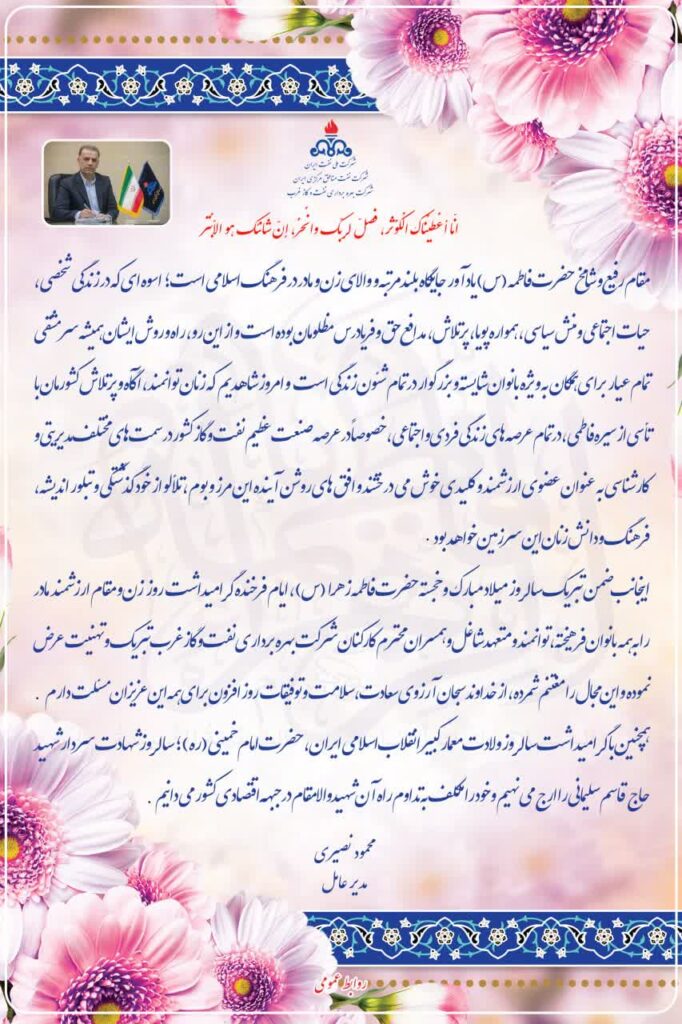 شرکت ملی نفت ایران
شرکت نفت مناطق مرکزی ایران
شرکت بهره برداری نفت و گاز غرب
انّا أعْطیناکَ الْکَوْثَر، فَصَلّ لِرَبِّکَ وانْحَرْ، إنّ شانئک هو الابْتَر
مقام رفیع و شامخ حضرت فاطمه (س) یادآور جایگاه بلند مرتبه و والای زن و مادر در فرهنگ اسلامی است؛ اسوه ای که در زندگی شخصی،
حیات اجتماعی و منش سیاسی، همواره پویا، پرتلاش، مدافع حق و فریادرس مظلومان بوده است و از این رو، راه و روش ایشان همیشه سرمشقی
تمام عیار برای همگان به ویژه بانوان شایسته و بزرگوار در تمام شئون زندگی است و امروز شاهدیم که زنان توانمند، آگاه و پرتلاش کشورمان با
تاسی از سیره فاطمی، در تمام عرصه های زندگی فردی و اجتماعی، خصوصاً در عرصه صنعت عظیم نفت و گاز کشور در سمت های مختلف مدیریتی و
کارشناسی به عنوان عضوی ارزشمند و کلیدی خوش می درخشند و افق های روشن آینده این مرز و بوم، تلألو از خودگذشتگی و تبلور اندیشه،
فرهنگ و دانش زنان این سرزمین خواهد بود .
اینجانب ضمن تبریک سالروز میلاد مبارک و خجسته حضرت فاطمه زهرا (س)، ایام فرخنده گرامیداشت روز زن و مقام ارزشمند مادر
را به همه بانوان فرهیخته، توانمند و متعهد شاغل و همسران محترم کارکنان شرکت بهره برداری نفت و گاز غرب تبریک و تهنیت عرض
نموده و این مجال را مغتنم شمرده، از خداوند سبحان آرزوی سعادت، سلامت و توفیقات روز افزون برای همه این عزیزان مسئلت دارم .
همچنین با گرامیداشت سالروز ولادت معمار کبیر انقلاب اسلامی ایران، حضرت امام خمینی (ره)؛ سالروز شهادت سردار شهید
حاج قاسم سلیمانی را ارج می نهیم و خود را مکلف به تداوم راه آن شهید والامقام در جبهه اقتصادی کشور می دانیم .
محمود نصیری
مدیر عامل
روابط عمومی